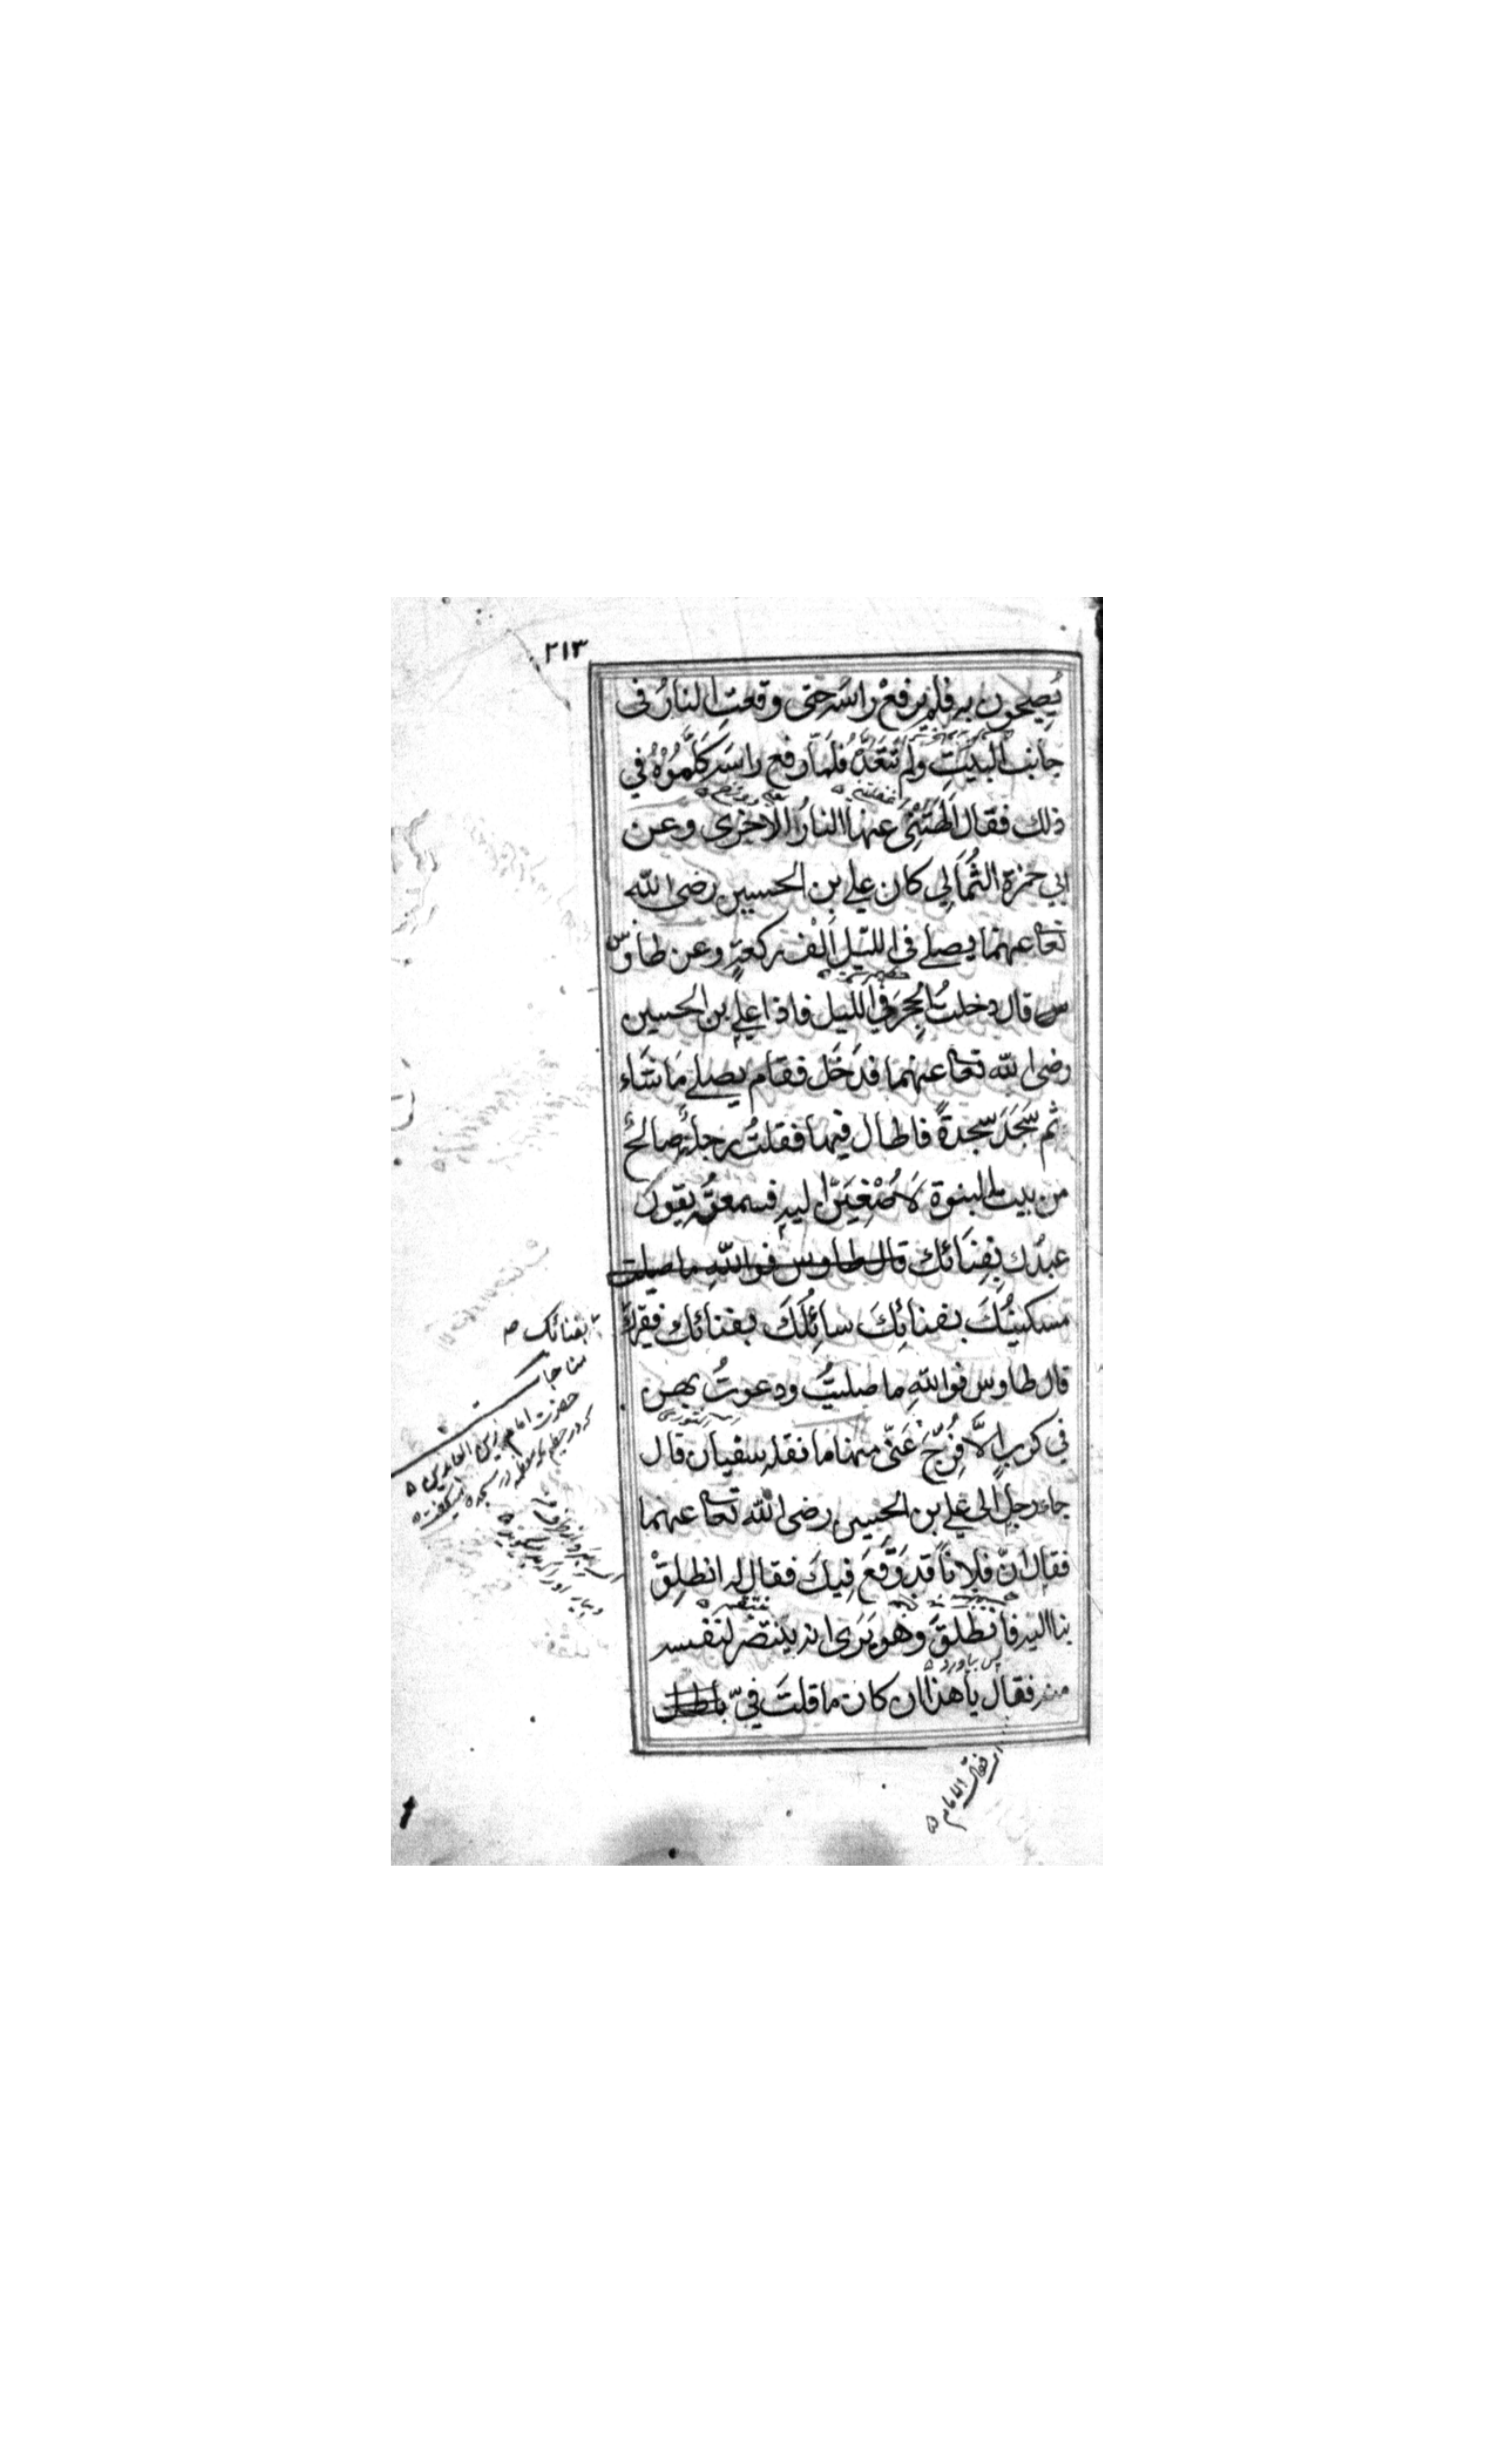 ٢١٣
يُصِيحون به فلم يرفع راسَه حتى وقعتِ النارُ فى
جانب البيتِ ولم تَتَعَدَّهُ فلمّا رفع راسَه كَلَّمُوْهُ في
ذلك فقال اَلْهَتْنِىْ عنها النارُ الاُخرٰى وعن
ابي حمزة الثُمَالِي كان علي بن الحسين رضى الله
تعا عنهما يصلے فى الليل اَلْفَ ركعةٍ وعن طاوس
س قال دخلتُ الحِجرَ في الليل فاذا علي بن الحسين
رضى الله تعا عنهما قد دَخَل فقام يصلے مَا شَاء
ثم سَجَدَ سجدةً فاطال فيها فقلتُ رجلٌ صالحٌ
من بيت النبوة لَاُصْغِيَنَّ اليه فسمعتُه يقول
عبدُك بِفِنَائك قال طاوس فوالله ما صليت
مسكينُكَ بفنائِكَ سائِلُكَ بفنائك فقيرك
بفنائك صح
قال طاوس فوالله ما صليتُ ودعوتُ بهن
في كربٍ اِلَّا فُرِّجَ عَنّى منها ما نقله سفيان قال
جاء رجل الى علي بن الحسين رضى الله تعا عنهما
فقال انّ فلاناً قد وَقَعَ فِيكَ فقال له انطلِقْ
بنا اليه فانطلقَ وهو يَرَى انه ينتصر لنفسه
منه فقال يا هذا ان كان ما قلتَ فيّ باطل
مناجات
حضرت امام زين العابدين
فقال الامام